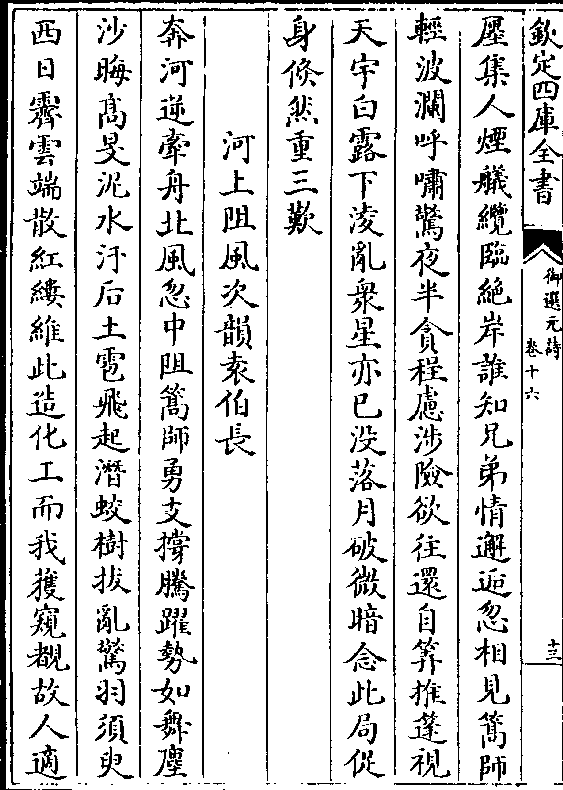 欽定四庫全書
御選元詩
卷十六
十三
壓集人煙艤纜臨絶岸誰知兄弟情邂逅忽相見篙師
輕波瀾呼嘯驚夜半貪程慮涉險欲往還自筭推蓬視
天宇白露下凌亂衆星亦已没落月破微暗念此局促
身倐然重三歎
河上阻風次韻袁伯長
奔河逆牽舟北風忽中阻篙師勇支撐騰躍勢如舞塵
沙晦高旻泥水汙后土雹飛起潛蛟樹拔亂驚羽須臾
西日霽雲端散紅縷維此造化工而我獲窺覩故人適